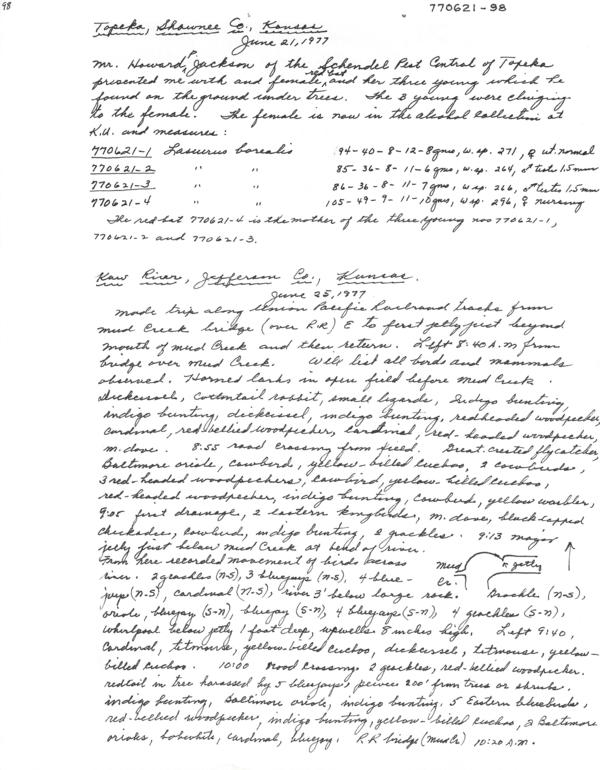 98
770621-98
Topeka, Shawnee Co., Kansas
June 21, 1977
Mr. Howard Jackson of the Schendel Pest Control of Topeka
presented me with and female red bat and her three young which he
found on the ground under trees. The 3 young were clinging
to the female. The female is now in the alcohol collection at
K.U. and measures:
770621-1 Lasiurus borealis 94-40-8-12-8gms, w.sp. 271, ♀ wt. normal
770621-2 " " 85-36-8-11-6gms, w.sp. 264, ♂ testes 1.5mm
770621-3 " " 86-36-8-11-7gms, w.sp. 266, ♂ testes 1.5mm
770621-4 " " 105-49-9-11-10gms, w.sp. 296, ♀ nursing
The red bat 770621-4 is the mother of the three young nos 770621-1,
770621-2 and 770621-3.
Kaw River, Jefferson Co., Kansas.
June 25, 1977
Made trip along Union Pacific Railroad tracks from
mud Creek bridge (over R.R) E to first jetty just beyond
mouth of mud Creek and then return. Left 8:40 A.m from
bridge over Mud Creek. Will list all birds and mammals
observed. Horned larks in open field before Mud Creek.
Dickcissels, Cottontail rabbit, small lizards, Indigo bunting,
indigo bunting, dickcissel, indigo bunting, redheaded woodpecker,
cardinal, red-bellied woodpecker, cardinal, red-headed woodpecker,
m. dove. 8:55 road crossing from field. Great crested flycatcher,
Baltimore oriole, cowbird, yellow-billed cuckoo, 2 cowbirds,
3 red-headed woodpeckers, cowbird, yellow-billed cuckoo,
red-headed woodpecker, indigo bunting, cowbird, yellow warbler,
9:05 first drainage, 2 eastern kingbirds, m. dove, black capped
chickadee, cowbird, indigo bunting, 2 grackles. 9:13 major
jetty just below Mud Creek at bend of river.
From here recorded movement of birds across
river. 2 grackles (N-S), 3 bluejays (N-S), 4 blue-
jays (N-S), cardinal (N-S), river 3' below large rock. Grackle (N-S),
Mud
Cr.
jetty
oriole, bluejay (S-N), bluejay (S-N), 4 bluejays (S-N), 4 grackles (S-N),
whirlpool below jetty 1 foot deep, upwells 8 inches high. Left 9:40,
Cardinal, titmouse, yellow-billed cuckoo, dickcissel, titmouse, yellow-
billed cuckoo. 10:00 Road Crossing. 2 grackles, red-bellied woodpecker.
redtail in tree harassed by 5 bluejays, 200' from trees or shrubs.
indigo bunting, Baltimore oriole, indigo bunting, 5 Eastern bluebirds,
red-bellied woodpecker, indigo bunting, yellow-billed cuckoo, 2 Baltimore
orioles, bobwhite, cardinal, bluejay. R.R bridge (Mud Cr) 10:20 A.m.